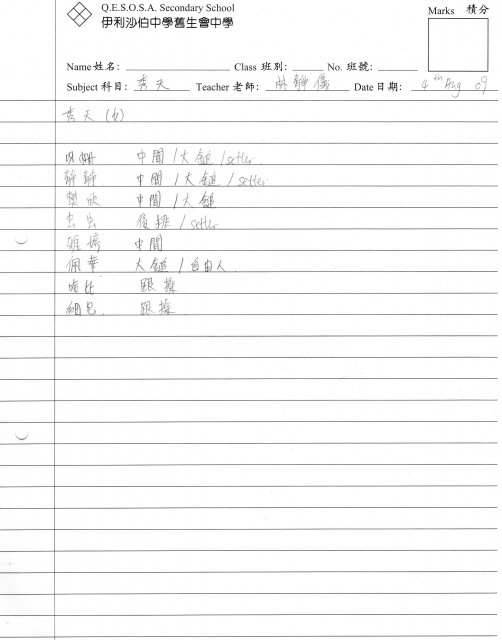 Q.E.S.O.S.A. Secondary School
伊利沙伯中學舊生會中學
Marks 積分
Name 姓名: Class 班別: No. 班號:
Subject 科目: 秀天 Teacher 老師: 林靜儀 Date 日期: 4th Aug 09
秀天 (女)
中間 / 大鎚 / setter
靜靜 中間 / 大鎚 / setter
樂欣 中間 / 大鎚
虫虫 後排 / setter
中間
佩華 大鎚 / 自由人
跟操
細包 跟操